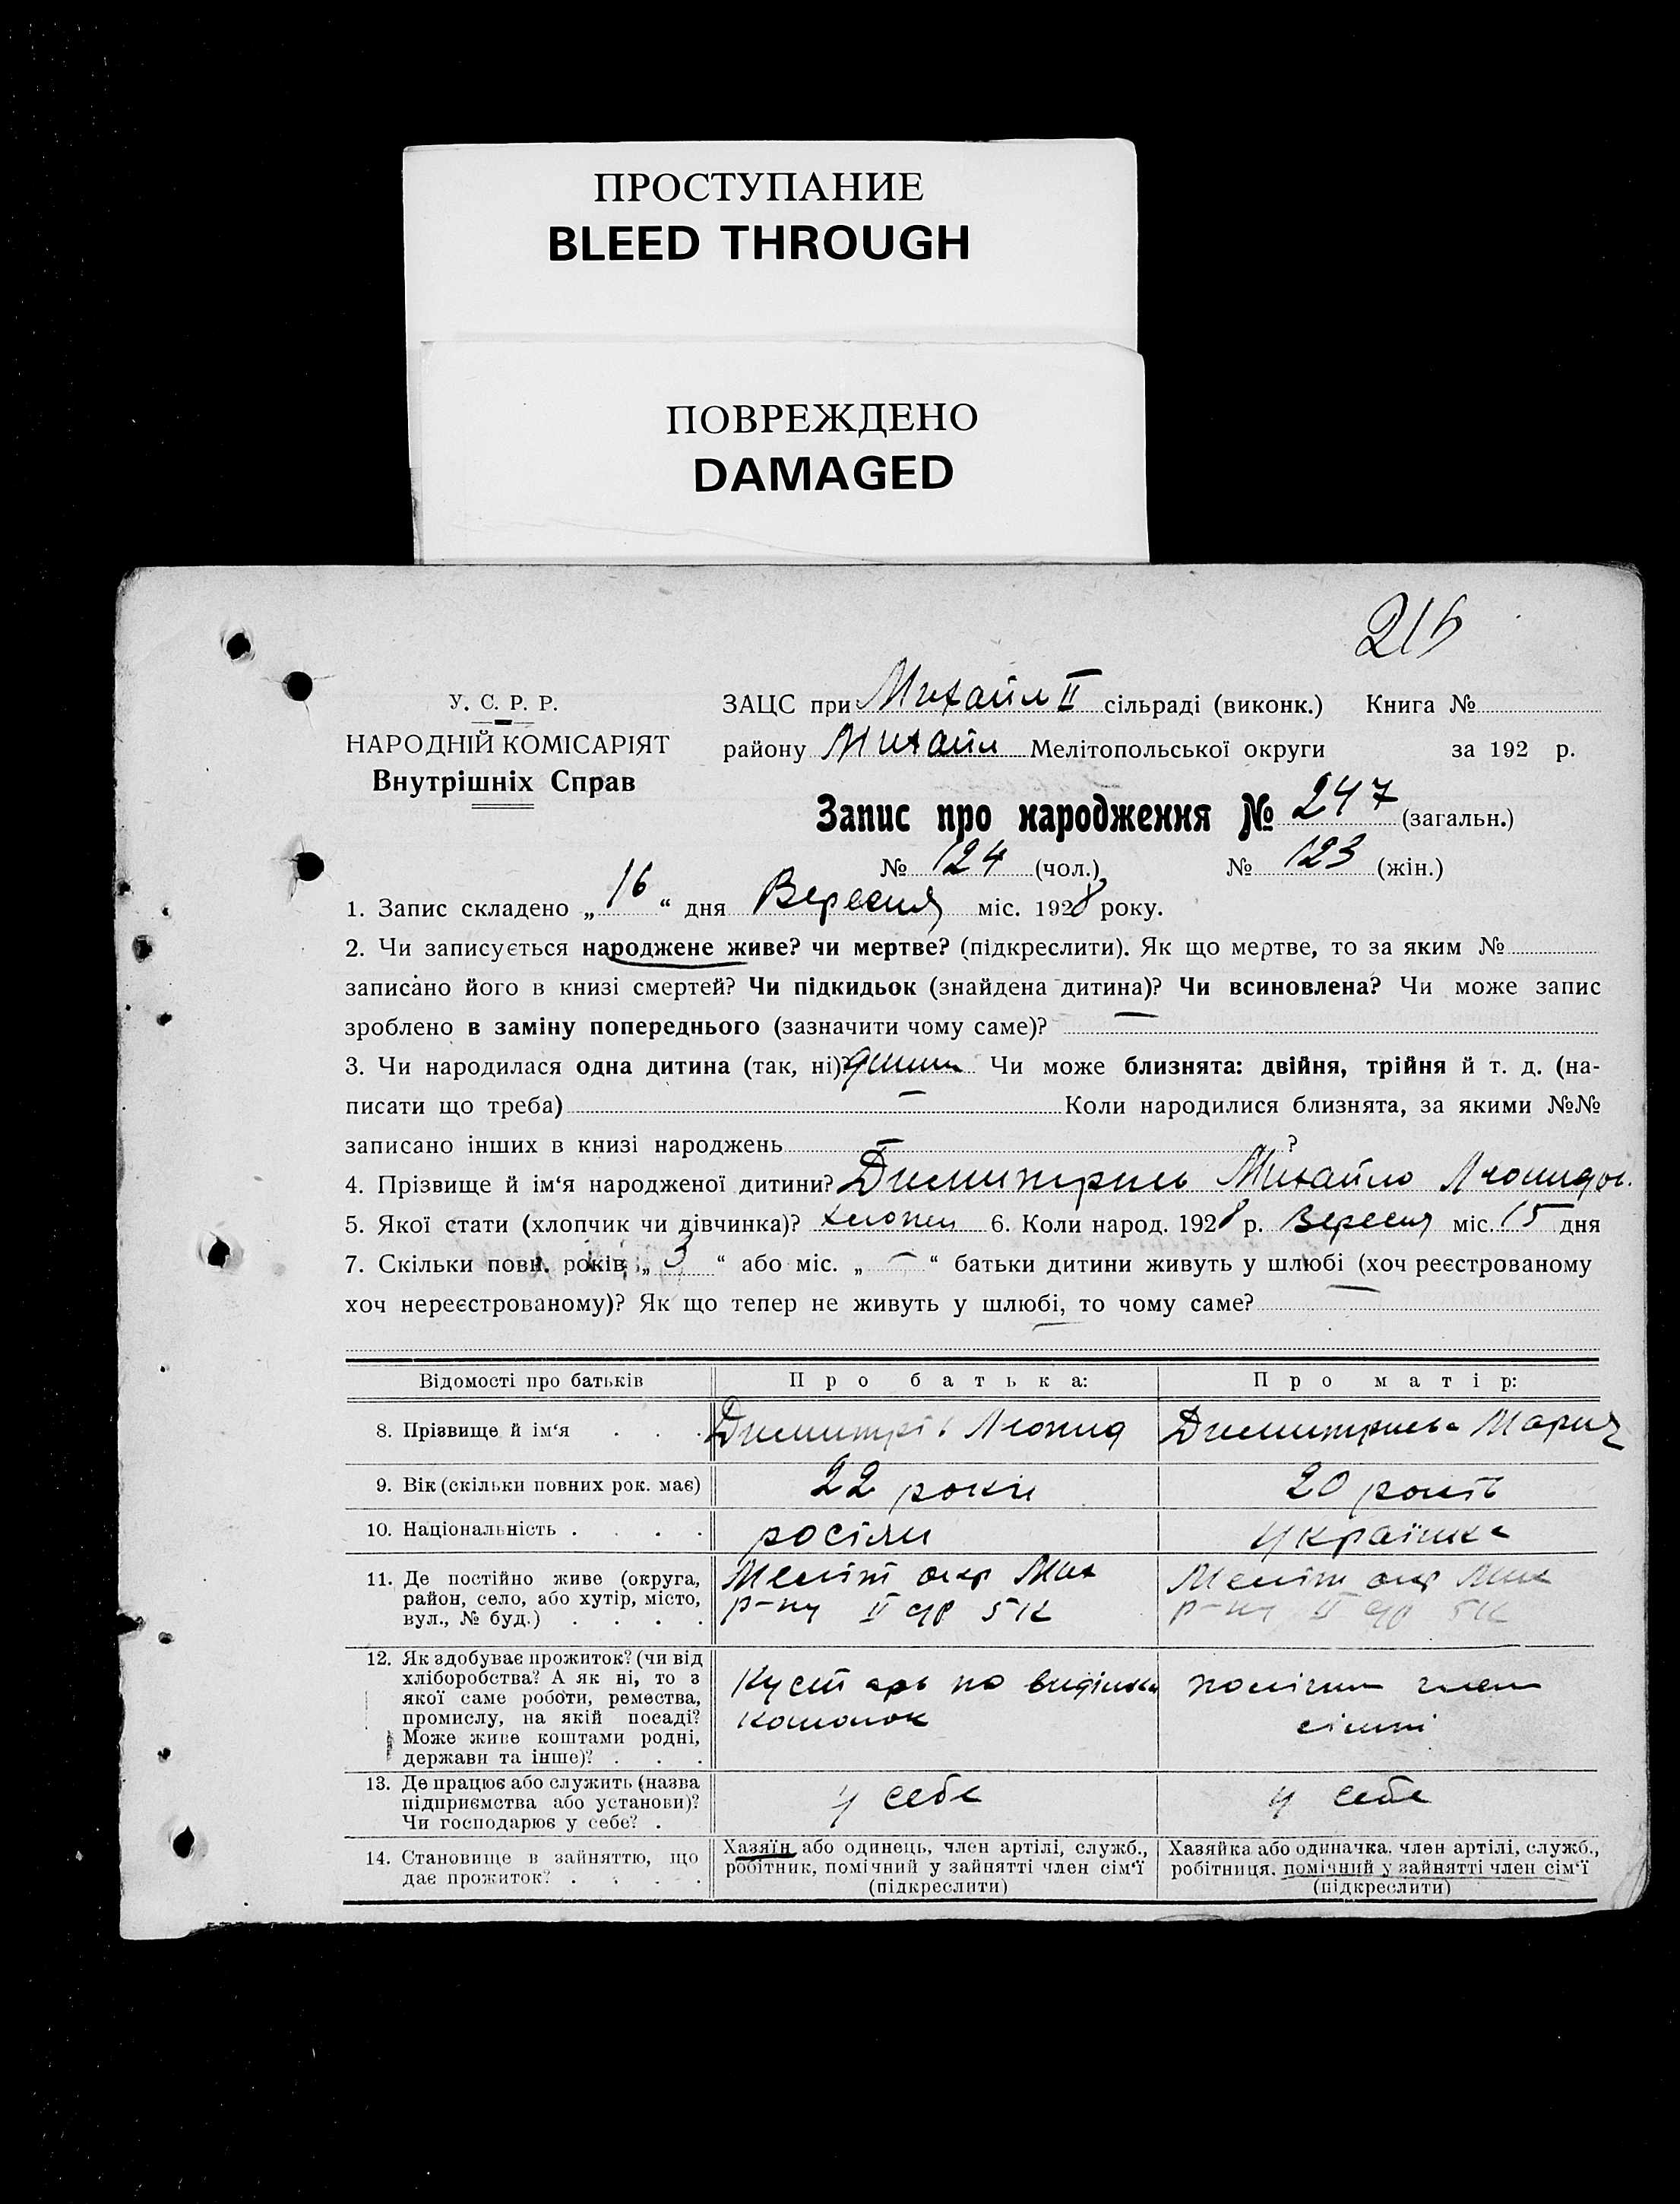 ПРОСТУПАНИЕ
BLEED THROUGH
ПОВРЕЖДЕНО
DAMAGED
216
У. С. Р. Р.
НАРОДНІЙ КОМІСАРІЯТ
Внутрішніх Справ
ЗАЦС при Михайл II сільраді (виконк.) Книга №
району Михайл Мелітопольської округи за 192 р.
Запис про народження № 247 (загальн.)
№ 124 (чол.) № 123 (жін.)
1. Запис складено „16“ дня Вересня міс. 1928 року.
2. Чи записується народжене живе? чи мертве? (підкреслити). Як що мертве, то за яким №
записано його в книзі смертей? Чи підкидьок (знайдена дитина)? Чи всиновлена? Чи може запис
зроблено в заміну попереднього (зазначити чому саме)?
3. Чи народилася одна дитина (так, ні)? Чи може близнята: двійня, трійня й т. д. (на-
писати що треба) Коли народилися близнята, за якими №№
записано інших в книзі народжень ?
4. Прізвище й ім‘я народженої дитини? Димитриев Михайло Леонидов.
5. Якої стати (хлопчик чи дівчинка)? хлопец 6. Коли народ. 1928 р. Вересня міс. 15 дня
7. Скільки повн. років „3“ або міс. „—“ батьки дитини живуть у шлюбі (хоч реєстрованому
хоч нереєстрованому)? Як що тепер не живуть у шлюбі, то чому саме?
Відомості про батьків Про батька: Про матір:
8. Прізвище й ім‘я Димитрів Леонид Димитриева Мария
9. Вік (скільки повних рок. має) 22 роки 20 років
10. Національність росіян українка
11. Де постійно живе (округа, район, село, або хутір, місто, вул., № буд.) Меліт окр Мих
р-ну II 5К Меліт окр Мих
р-ну II 5К
12. Як здобуває прожиток? (чи від хліборобства? А як ні, то з якої саме роботи, ремества, промислу, на якій посаді? Може живе коштами родні, держави та інше)? Кустарь по виділки
кошолок помічн член
сімні
13. Де працює або служить (назва підприємства або установи)? Чи господарює у себе? у себе у себе
14. Становище в зайняттю, що дає прожиток? Хазяїн або одинець, член артілі, служб., робітник, помічний у зайнятті член сім‘ї (підкреслити) Хазяйка або одиначка, член артілі, служб., робітниця, помічний у зайнятті член сім‘ї (підкреслити)